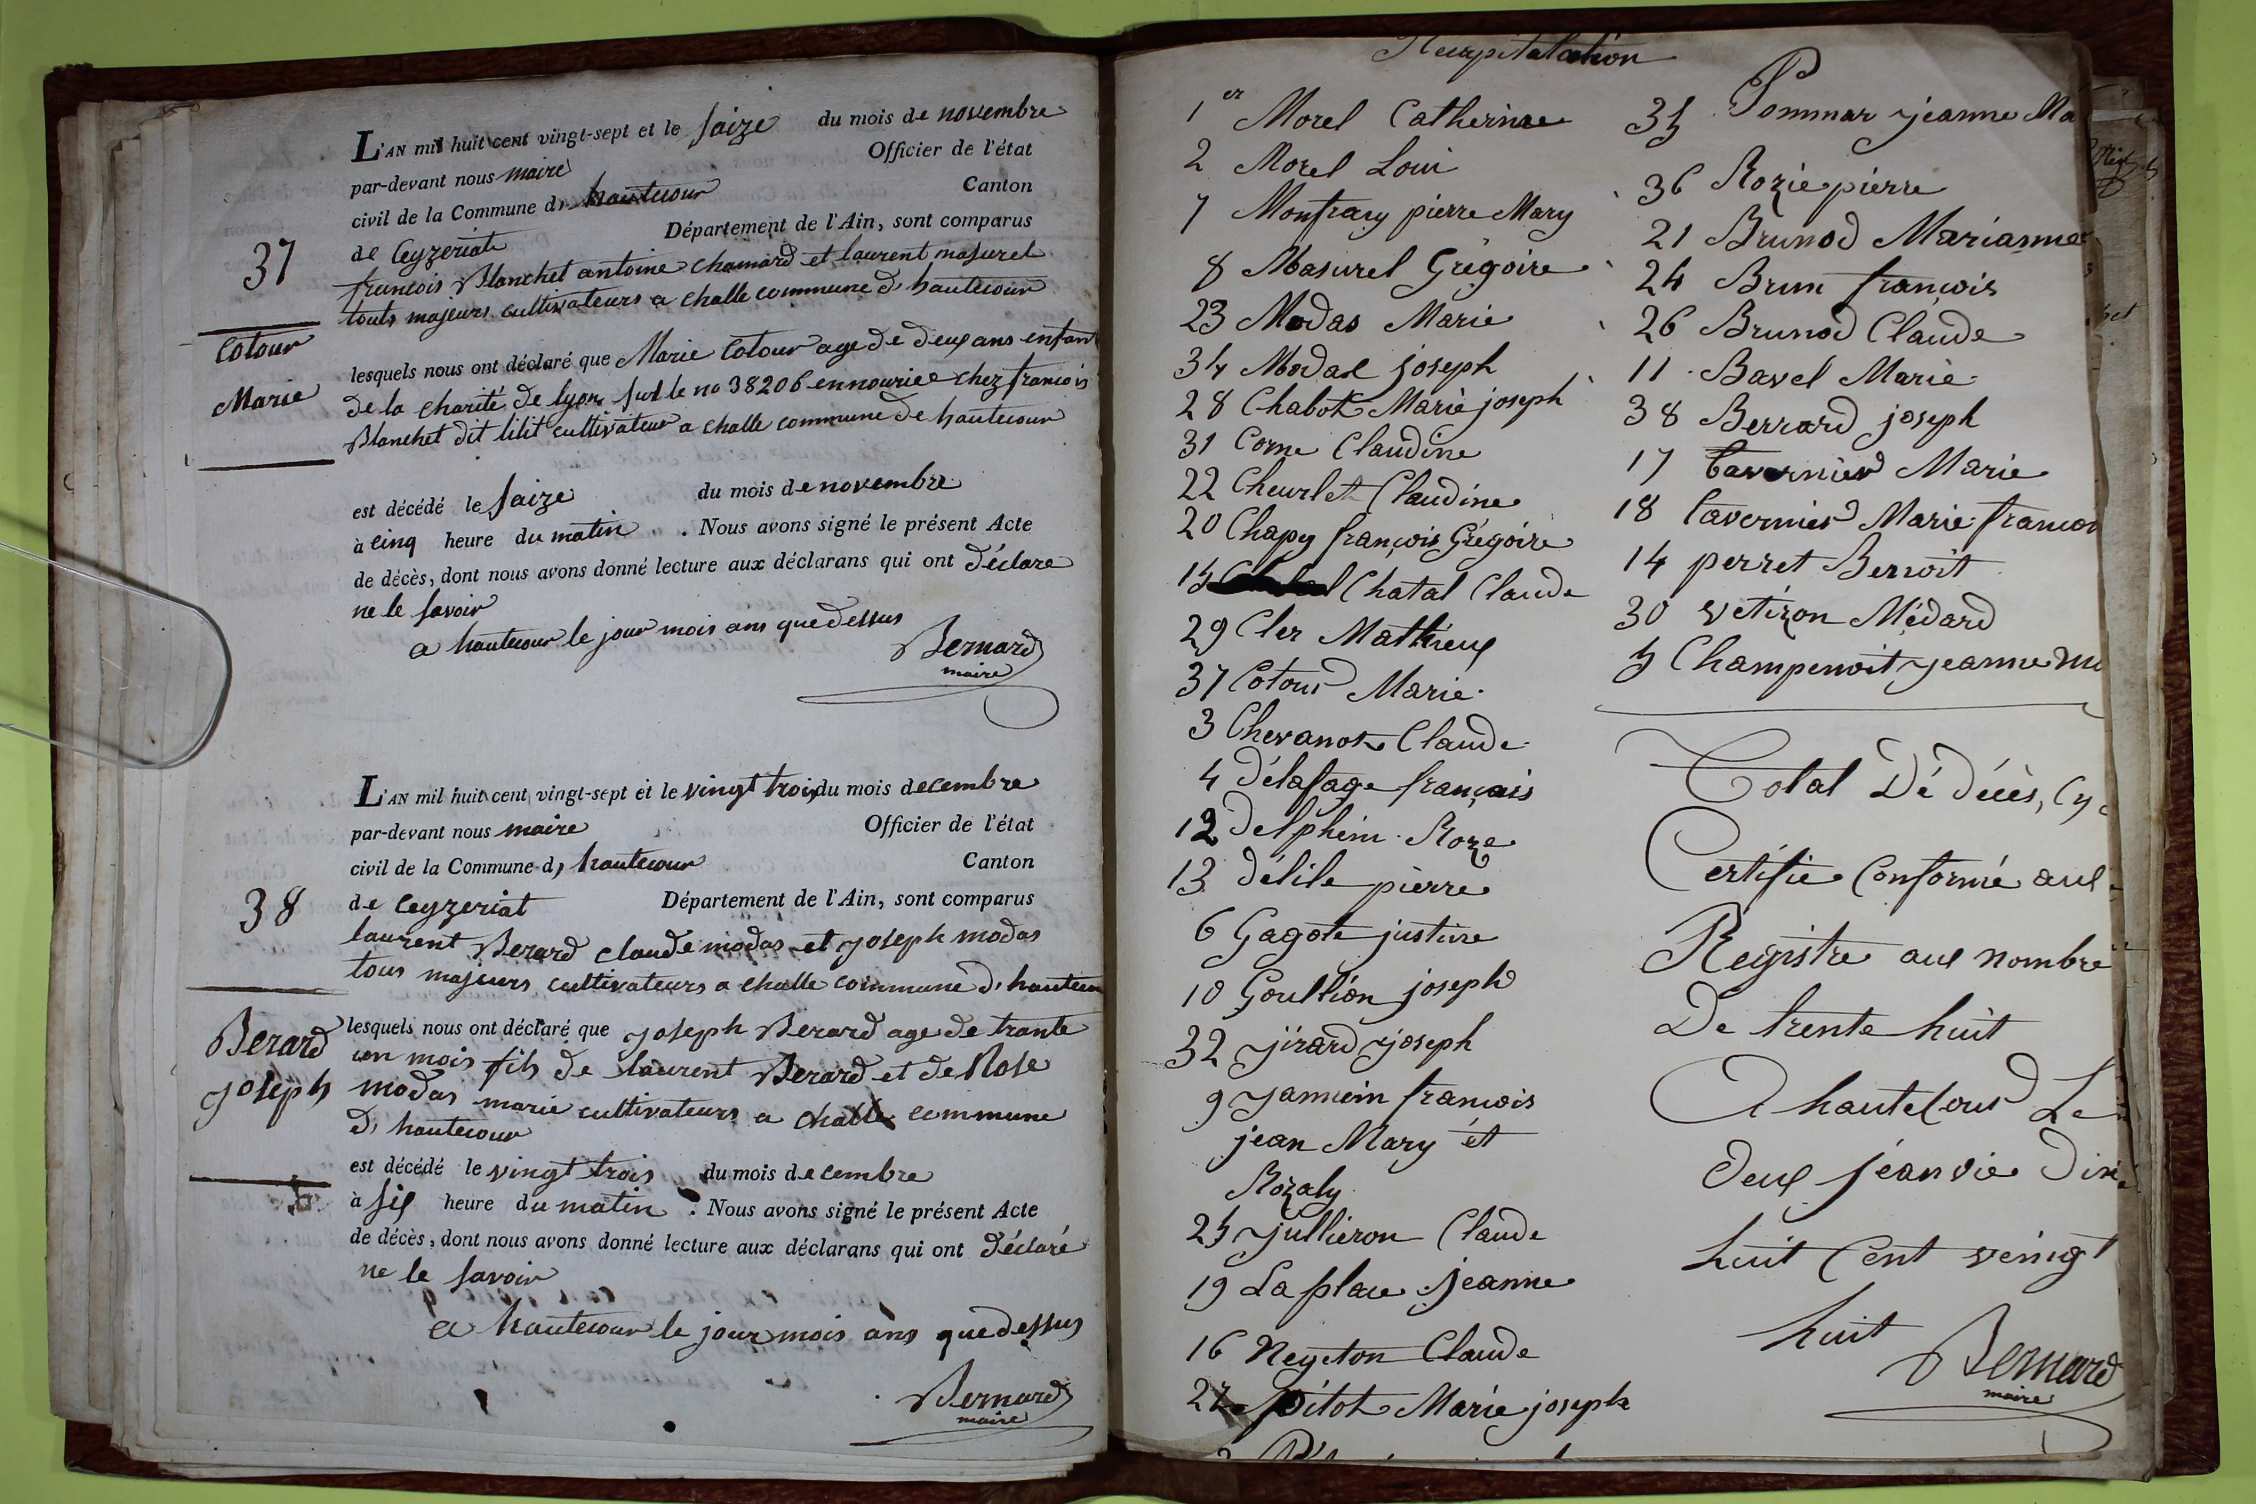 L'AN mil huit cent vingt-sept et le saize du mois de novembre
par-devant nous maire Officier de l'état
civil de la Commune d, hautecour Canton
de Ceyzeriat Département de l'Ain, sont comparus
francois Blanchet antoine chamard et laurent masurel
touts majeurs cultivateurs a challe commune d, hautecour
37
Cotour
Marie
lesquels nous ont déclaré que Marie Cotour age de deux ans enfant
de la charité de lyon sur le no 38206 en nourice chez francois
Blanchet dit cultivateur a challe commune de hautecour
est décédé le saize du mois de novembre
à cinq heure du matin . Nous avons signé le présent Acte
de décès, dont nous avons donné lecture aux déclarans qui ont déclare
ne le savoir
a hautecour le jour mois ans que dessus
Bernard
maire
L'AN mil huit cent vingt-sept et le vingt trois du mois decembre
par-devant nous maire Officier de l'état
civil de la Commune d, hautecour Canton
de Ceyzeriat Département de l'Ain, sont comparus
laurent Berard claude modas et joseph modas
tous majeurs cultivateurs a challe commune d, hautecour
38
Berard
joseph
lesquels nous ont déclaré que joseph Berard age de trante
un mois fils de laurent Berard et de Rose
modas marié cultivateurs a challe commune
d, hautecour
est décédé le vingt trois du mois decembre
à six heure du matin . Nous avons signé le présent Acte
de décès, dont nous avons donné lecture aux déclarans qui ont déclaré
ne le savoir
a hautecour le jour mois ans que dessus
Bernard
maire
Recapitulation
1er Morel Catherine
2 Morel Loui
7 Monfray pierre Mary
8 Masurel Grégoire
23 Modas Marie
34 Modas joseph
28 Chabot Marie joseph
31 Corne Claudine
22 Cheurlet Claudine
20 Chapy françois Grégoire
15 Chatal Claude
29 Cler Mathieux
37 Cotour Marie
3 Chevanot Claude
4 Délasage français
12 Delphein Roze
13 Délile pierre
6 Gagote justine
10 Goullion joseph
32 jirard joseph
9 jannein francois
jean Mary et
Rozaly
25 jullieron Claude
19 La place jeanne
16 Neyeton Claude
27 pitot Marie joseph
35 Pommar jeanne Ma
36 Rozie pierre
21 Brunod Marianne
24 Brun françois
26 Brunod Claude
11 Bavel Marie
38 Berrard joseph
17 tavernier Marie
18 tavernier Marie françoi
14 perret Benoit
30 vétizon Médard
5 Champenoit jeanne Ma
Total Dé décès, Cy
Certifie Conformé aux
Registre aux nombre
De trente huit
A hautecour Le
deux jeanvie Dixé
huit Cent veingt
huit
Bernard
maire